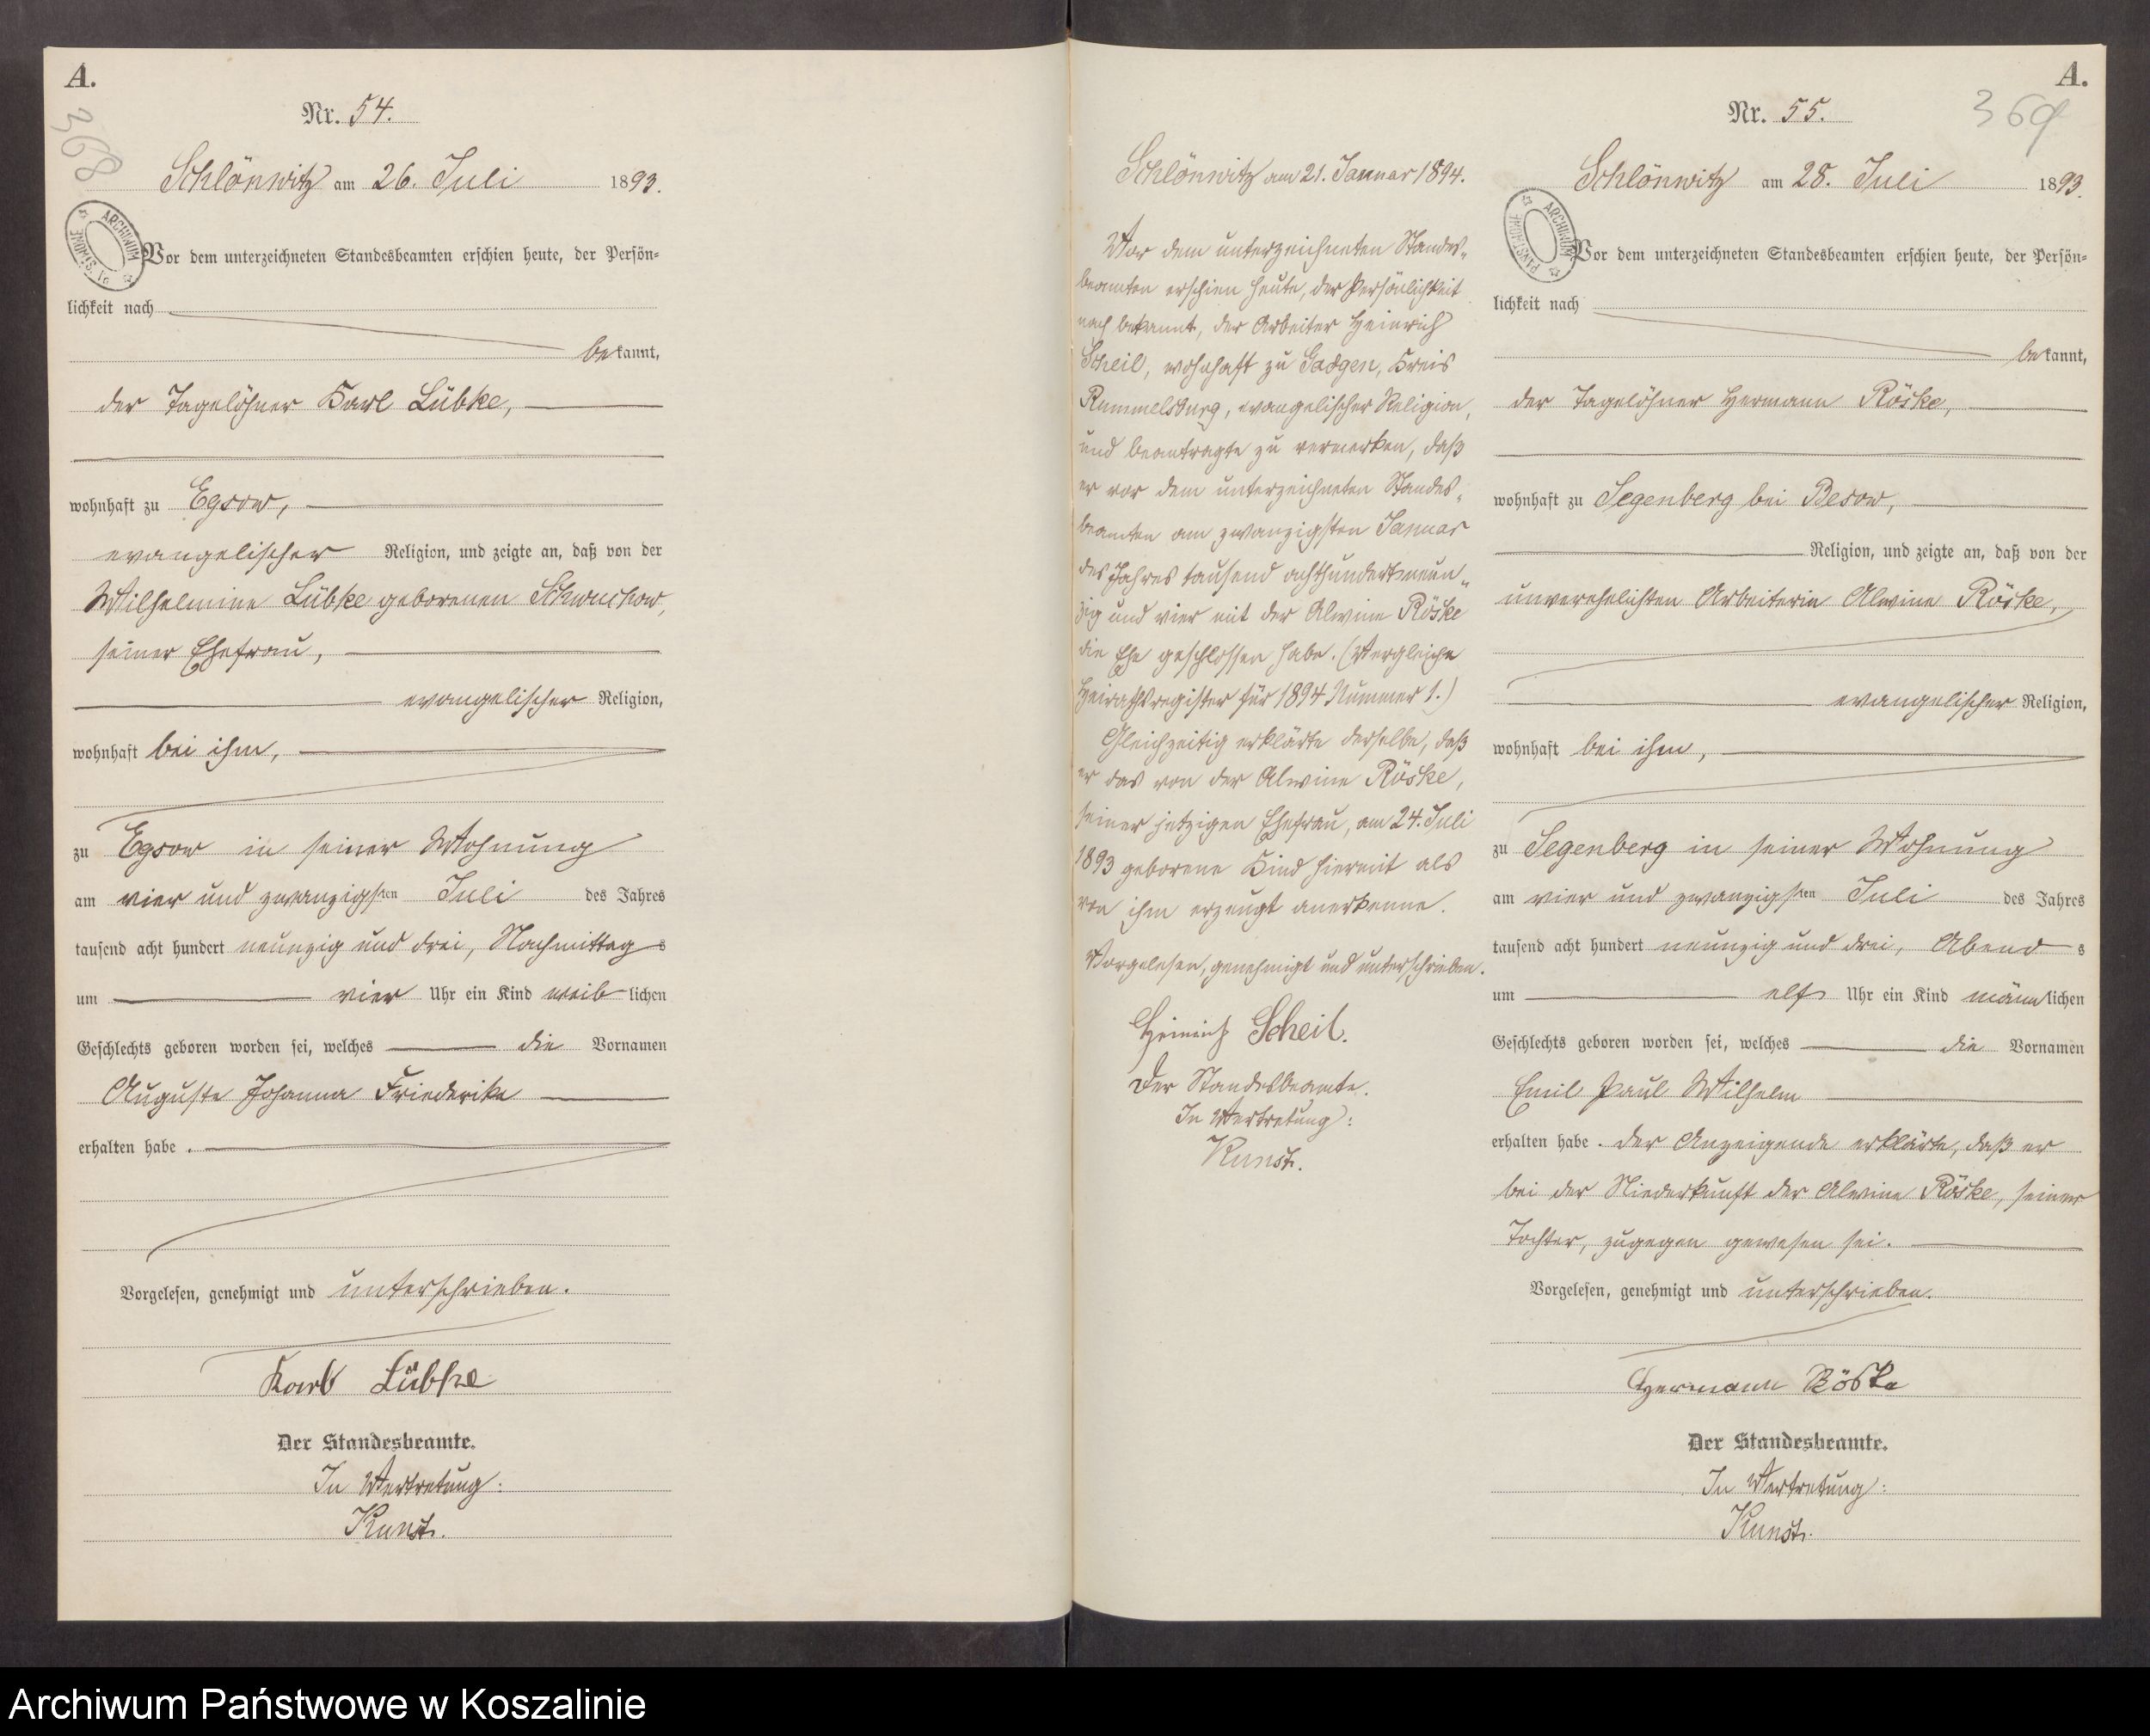 A.
368
Nr. 54.
Schlönwitz am 26. Juli 1893.
Vor dem unterzeichneten Standesbeamten erschien heute, der Persön-
lichkeit nach
bekannt,
der Tagelöhner Karl Lübke,
wohnhaft zu Egsow,
evangelischer Religion, und zeigte an, daß von der
Wilhelmine Lübke geborenen Schwuchow,
seiner Ehefrau,
evangelischer Religion,
wohnhaft bei ihm,
zu Egsow in seiner Wohnung
am vier und zwanzigsten Juli des Jahres
tausend acht hundert neunzig und drei, Nachmittags
um vier Uhr ein Kind weiblichen
Geschlechts geboren worden sei, welches die Vornamen
Auguste Johanna Friederike
erhalten habe.
Vorgelesen, genehmigt und unterschrieben.
Karl Lübke
Der Standesbeamte.
In Vertretung:
Kunst.
Schlönwitz am 21. Januar 1894.
Vor dem unterzeichneten Standes-
beamten erschien heute, der Persönlichkeit
nach bekannt, der Arbeiter Heinrich
Scheil, wohnhaft zu Gadgen, Kreis
Rummelsburg, evangelischer Religion,
und beantragte zu vermerken, daß
er vor dem unterzeichneten Standes-
beamten am zwanzigsten Januar
des Jahres tausend achthundert neun-
zig und vier mit der Alwine Röske
die Ehe geschlossen habe. (Vergleiche
Heirathsregister für 1894 Nummer 1.)
Gleichzeitig erklärte derselbe, daß
er das von der Alwine Röske,
seiner jetzigen Ehefrau, am 24. Juli
1893 geborene Kind hiermit als
von ihm erzeugt anerkenne.
Vorgelesen, genehmigt und unterschrieben.
Heinrich Scheil.
Der Standesbeamte.
In Vertretung:
Kunst.
A.
369
Nr. 55.
Schlönwitz am 28. Juli 1893.
Vor dem unterzeichneten Standesbeamten erschien heute, der Persön-
lichkeit nach
bekannt,
der Tagelöhner Hermann Röske,
wohnhaft zu Segenberg bei Besow,
Religion, und zeigte an, daß von der
unverehelichten Arbeiterin Alwine Röske,
evangelischer Religion,
wohnhaft bei ihm,
zu Segenberg in seiner Wohnung
am vier und zwanzigsten Juli des Jahres
tausend acht hundert neunzig und drei, Abends
um elf Uhr ein Kind männlichen
Geschlechts geboren worden sei, welches die Vornamen
Emil Paul Wilhelm
erhalten habe. Der Anzeigende erklärte, daß er
bei der Niederkunft der Alwine Röske, seiner
Tochter, zugegen gewesen sei.
Vorgelesen, genehmigt und unterschrieben.
Hermann Röske
Der Standesbeamte.
In Vertretung:
Kunst.
Archiwum Państwowe w Koszalinie